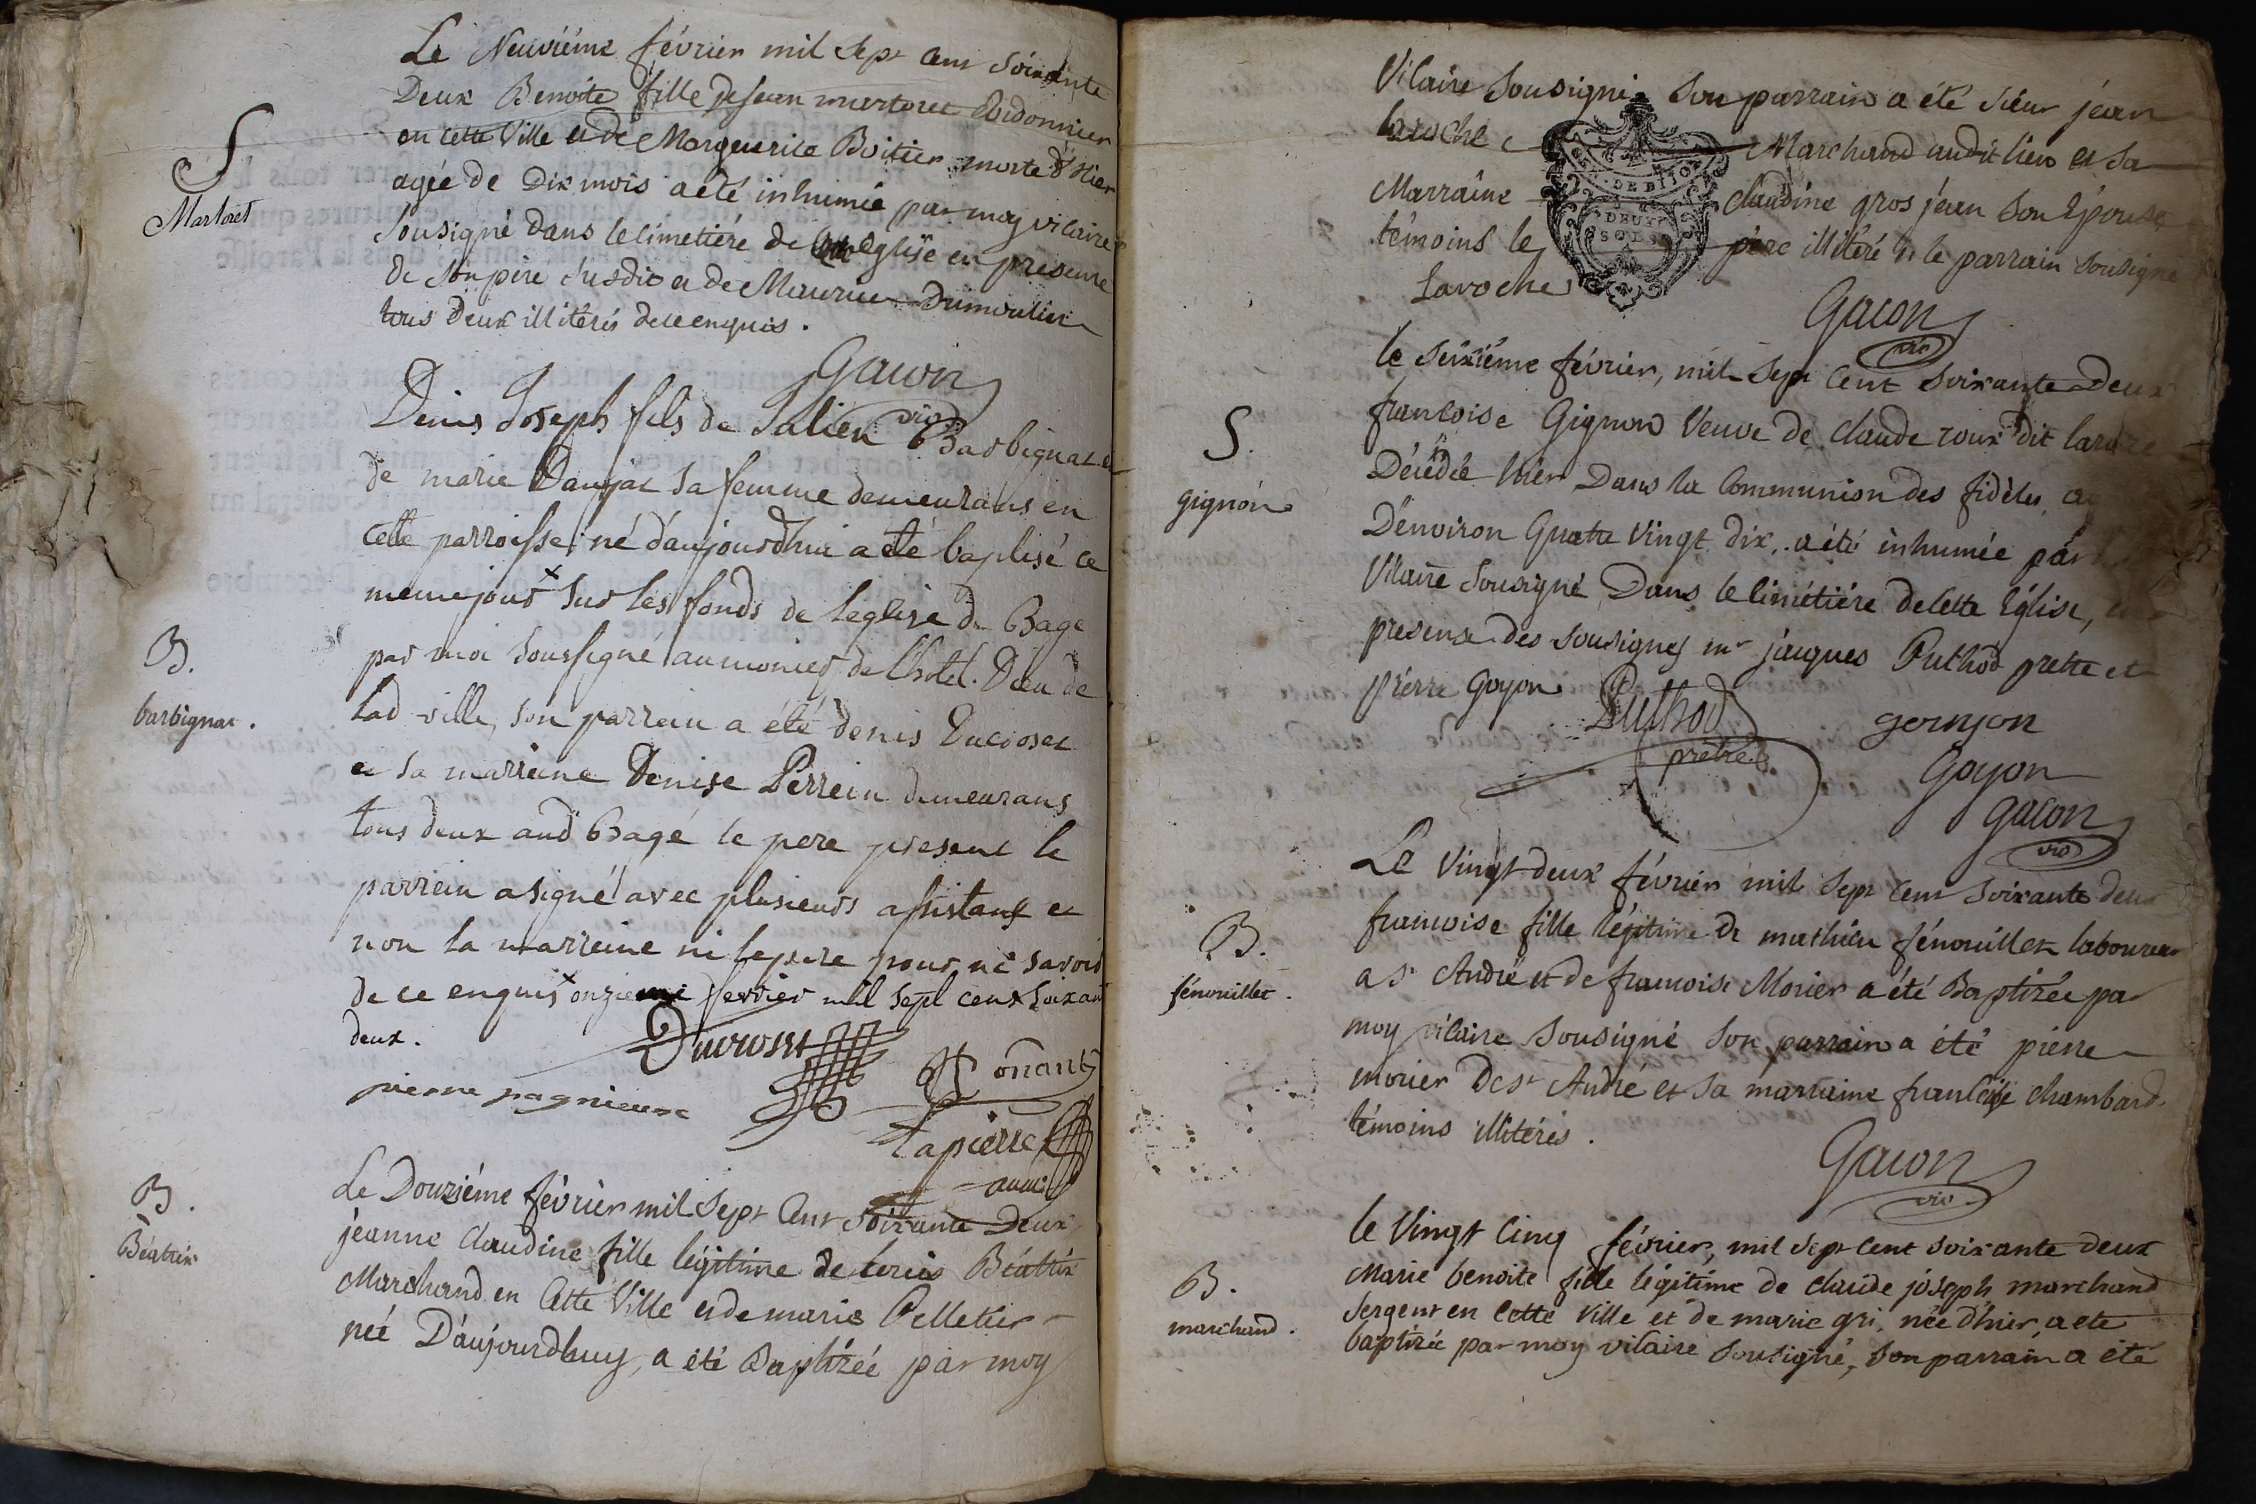 Le Neuviéme février mil sept cent soixante
Deux Benoite fille de jean martoret Cordonnier
en cette Ville et de Marguerite Boitier morte d'hier
agée de Dix mois a été inhumée par moy vicaire
S
Martoret
sousigné dans le cimetiére de cette église en presence
de son pére susdit et de Maurice Dumoulin
tous deux illitérés de ce enquis.
Gacon
vic
Denis Joseph fils de Julien Barbignat et
de marie Danjat sa femme demeurans en
cette parroisse né d'aujourdhui a été baptisé ce
meme jour x sur les fonds de leglise de Bagé
B.
barbignat.
par moi soussigné aumonier de lhotel Dieu de
lad ville, son parrein a été denis Ducroset
et sa marreine Denise Perrein demeurans
tous deux aud Bagé le pere present le
parrein a signé avec plusieurs assistans et
non la marreine ni le pere pour ne savoir
de ce enquis x onzieme fevrier mil sept cent soixante
deux.
Ducroset
pierre pagnieux
Lapierre
aum.
B.
Béatrix
Le Douziéme février mil sept Cent soixante Deux
jeanne Claudine fille légitime de Louis Béatrix
Marchand en Cette Ville et de marie Pelletier
née D'aujourdhuy, a été Baptizée par moy
Vicaire sousigné son parrain a été sieur jean
laroche Marchand audit lieu et sa
Marraine claudine gros jean son Epouse
témoins le pére illitéré et le parrain sousigné
Laroche
DE DIJO
DEUX
SOLS
Gacon
vic
S.
gignon
le seiziéme février, mil sept Cent soixante Deux
francoise Gignon Veuve de claude roux dit
Décédée hier Dans la Communion des fidéles,
D'environ Quatre Vingt dix, a été inhumée par
Vicaire sousigné Dans le cimétiére de cette Église,
presence des sousignes mr jacques Puthod pretre et
pierre Goyon
Puthod
pretre
gornjon
Goyon
Gacon
vic
B.
fénouillet.
Le Vingt deux février mil sept cent soixante deux
francoise fille légitime de mathieu fénouillet laboureur
a st André et de francoise Morier a été Baptizée par
moy vicaire sousigné son parrain a été pierre
morier de st André et sa marraine francoise chambard
témoins illitérés.
Gacon
vic.
B.
marchand.
le Vingt Cinq février, mil sept cent soixante deux
Marie benoite fille légitime de claude joseph marchand
sergent en cette ville et de marie gri, née d'hier, a été
baptizée par moy vicaire sousigné, son parrain a été